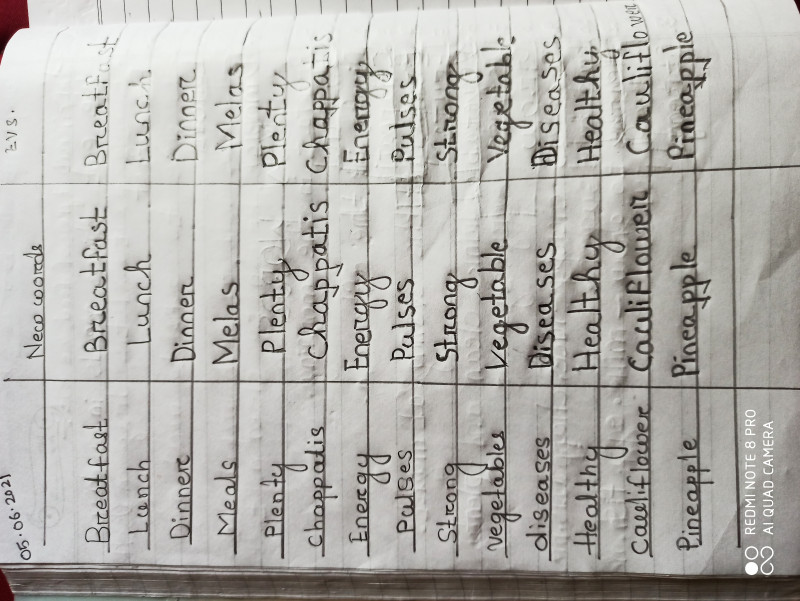 05.06.2021 New words EVS.
Breatfast Breatfast Breatfast
Lunch Lunch Lunch
Dinner Dinner Dinner
Meals Melas Melas
Plenty Plenty Plenty
chappatis chappatis Chappatis
Energy Energy Energy
Pulses Pulses Pulses
Strong Strong Strong
vegetables Vegetable Vegetable
diseases Diseases Diseases
Healthy Healthy Healthy
Cauliflower Cauliflower Cauliflower
Pineapple Pineapple Pineapple
REDMI NOTE 8 PRO
AI QUAD CAMERA